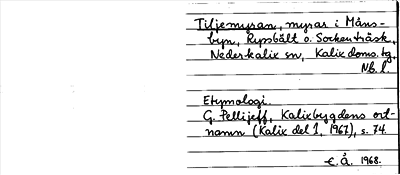 Tiljemyran, myrar i Måns-
byn, Rypsbält o. Sockenträsk,
Nederkalix sn, Kalix doms. tg,
Nb. l.
Etymologi.
G. Pellijeff, Kalixbygdens ort-
namn (Kalix del 1, 1967), s. 74.
E. Å. 1968.